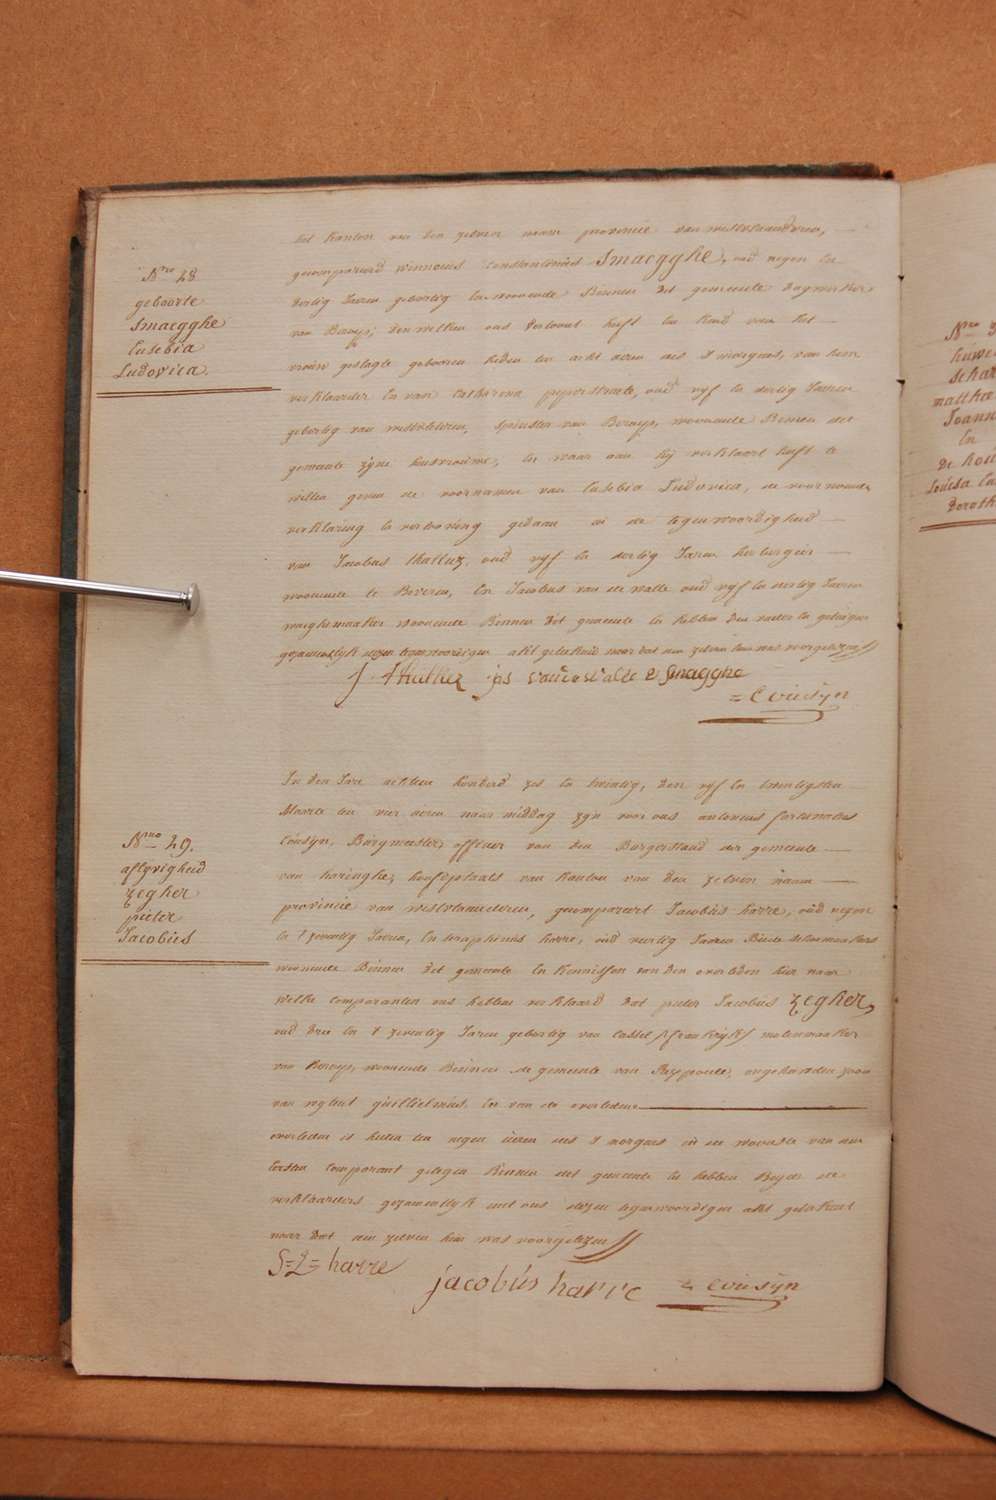 Nro 28
geboorte
Smaegghe
Eusebia
Ludovica.
het kanton van den zelven naam provincie van westvlaanderen,
gecompareerd winnocus Constantinus Smaegghe, oud negen en
dertig Jaeren geboortig en woonende Binnen det gemeente dagwerker
van Beroep, den welken ons vertoont heeft een kind van het
vrouw geslagte geboren heden ten acht uren des s'morgens, van hem
verklaerder en van Catharena pyperstraete, oud vyf en dertig Jaeren
gebortig van westvleteren, spinster van Beroep, woonende Binnen det
gemeente zyne huisvrouwe, en waar aan hij verklaart heeft te
willen geven de voornamen van Eusebia Ludovica, de voornoemde
verklaring en vertooning gedaan in de tegenwoordigheid
van Jacobus thulliez, oud vyf en dertig Jaeren herbergier
woonende te Beveren, en Jacobus van de walle oud vyf en dertig Jaeren
woonende Binnen det gemeente en hebben den vader en getuigen
gezamentlyk dezen tegenwoordigen akt geteekend naar dat aen zelven hun was voorgelezen
J. Thulliez js vandewalle Smagghe
= Cousyn
Nro 29.
aflyvigheid
Zegher
pieter
Jacobus
In den Jare achtien honderd zes en twintig, den vyf en twintigsten
Maarte ten vier uren naar middag zyn voor ons antonius fortunatus
Cousyn, Burgmeester, officier van den Burgerstand der gemeente
van haringhe, hoofdplaats van kanton van den zelven naam
provincie van westvlaanderen, gecompareert Jacobus harre, oud negen
en t'zeventig Jaren, en seraphinus harre, oud veertig Jaeren Beide
woonende Binnen det gemeente en kennissen van den overleden hier naer
welke comparanten ons hebben verklaard dat pieter Jacobus Zegher,
oud drie en t'zeventig Jaren gebortig van Cassel /frankryk/ molenmaker
van Beroep, woonende Binnen de gemeente van Rexpoede, ongehuwden zoon
van guillielmus, en van de overledene
overleden is heden ten negen uren des s'morgens in de woonste van den
eersten comparant gelegen Binnen det gemeente en hebben Beyde de
verklaarders gezamentlyk met ons dezen tegenwoordigen akt geteekent
naar dat aen zelven hun was voorgelezen
S=L= harre
jacobus harre
= Cousyn
Nro
huwe
Schar
matthæ
Joann
En
de hou
Louisa Ca
Doroth